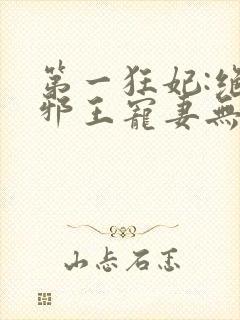 第一狂妃:绝
邪王寵妻無
山忐石恙